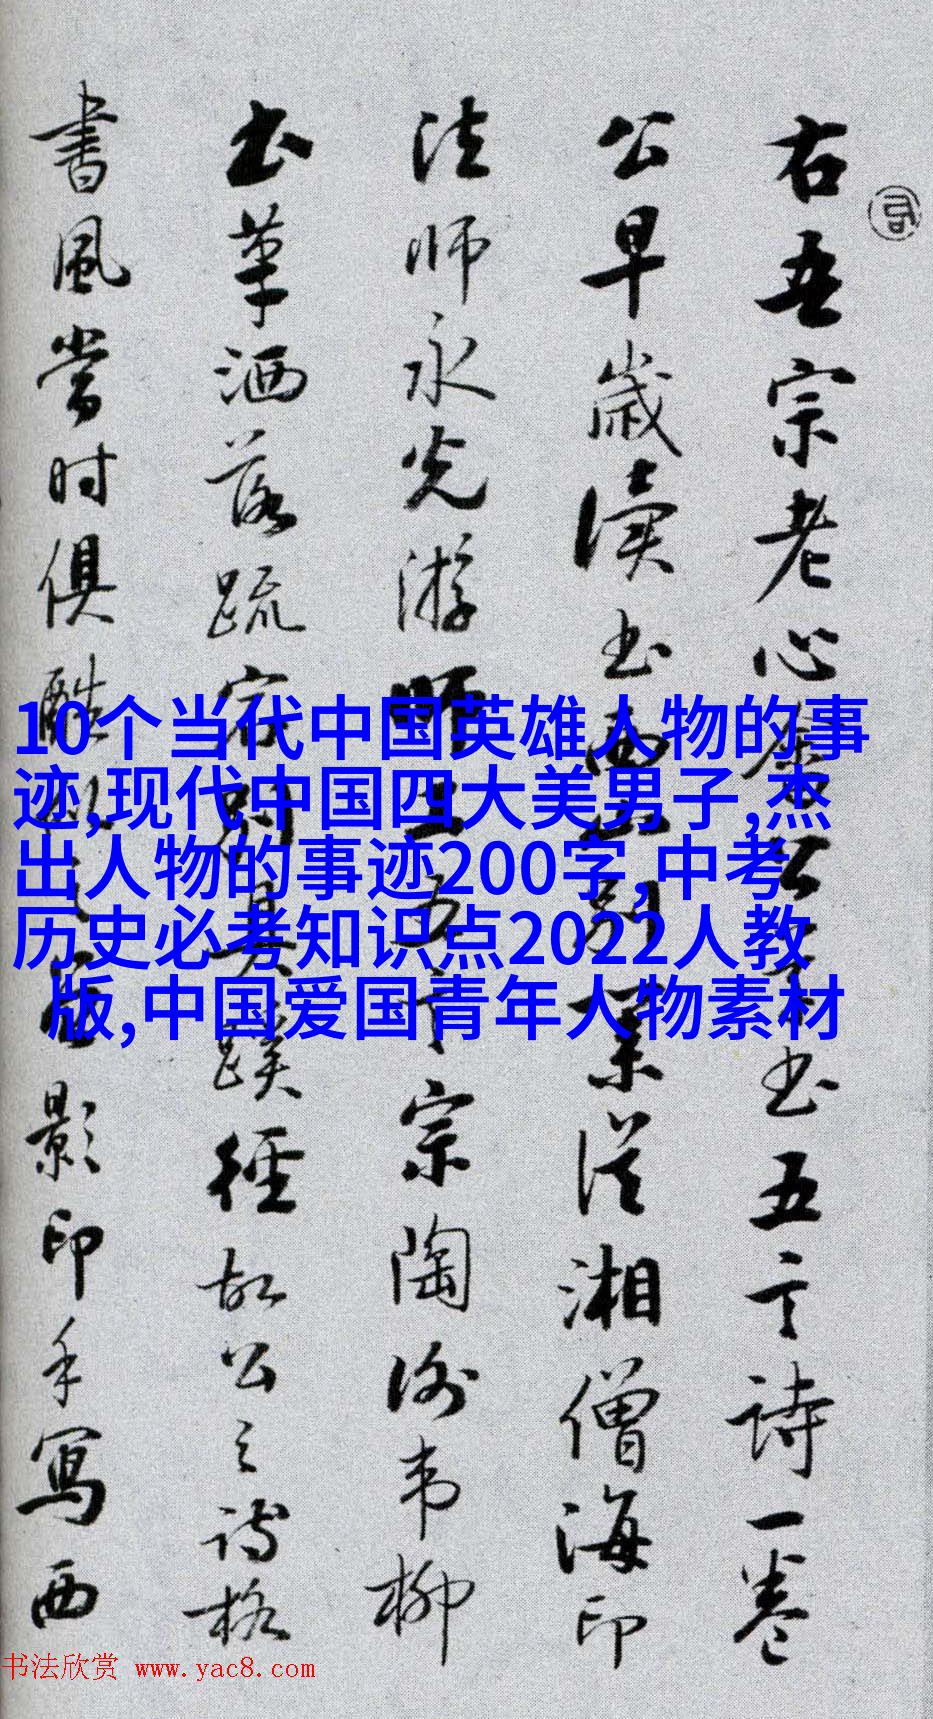 右吾宗老心
公手书五言诗一卷
公早歲讀书西
别业从湘僧海印
法师永光游師
五言宗陶谢韦柳
书草洒落疏宕别具蹊徑故公之诗格
書風當时俱酷
影印手寫西
10个当代中国英雄人物的事
迹,现代中国四大美男子,杰
出人物的事迹200字,中考
历史必考知识点2022人教
版,中国爱国青年人物素材
书法欣赏 www.yac8.com